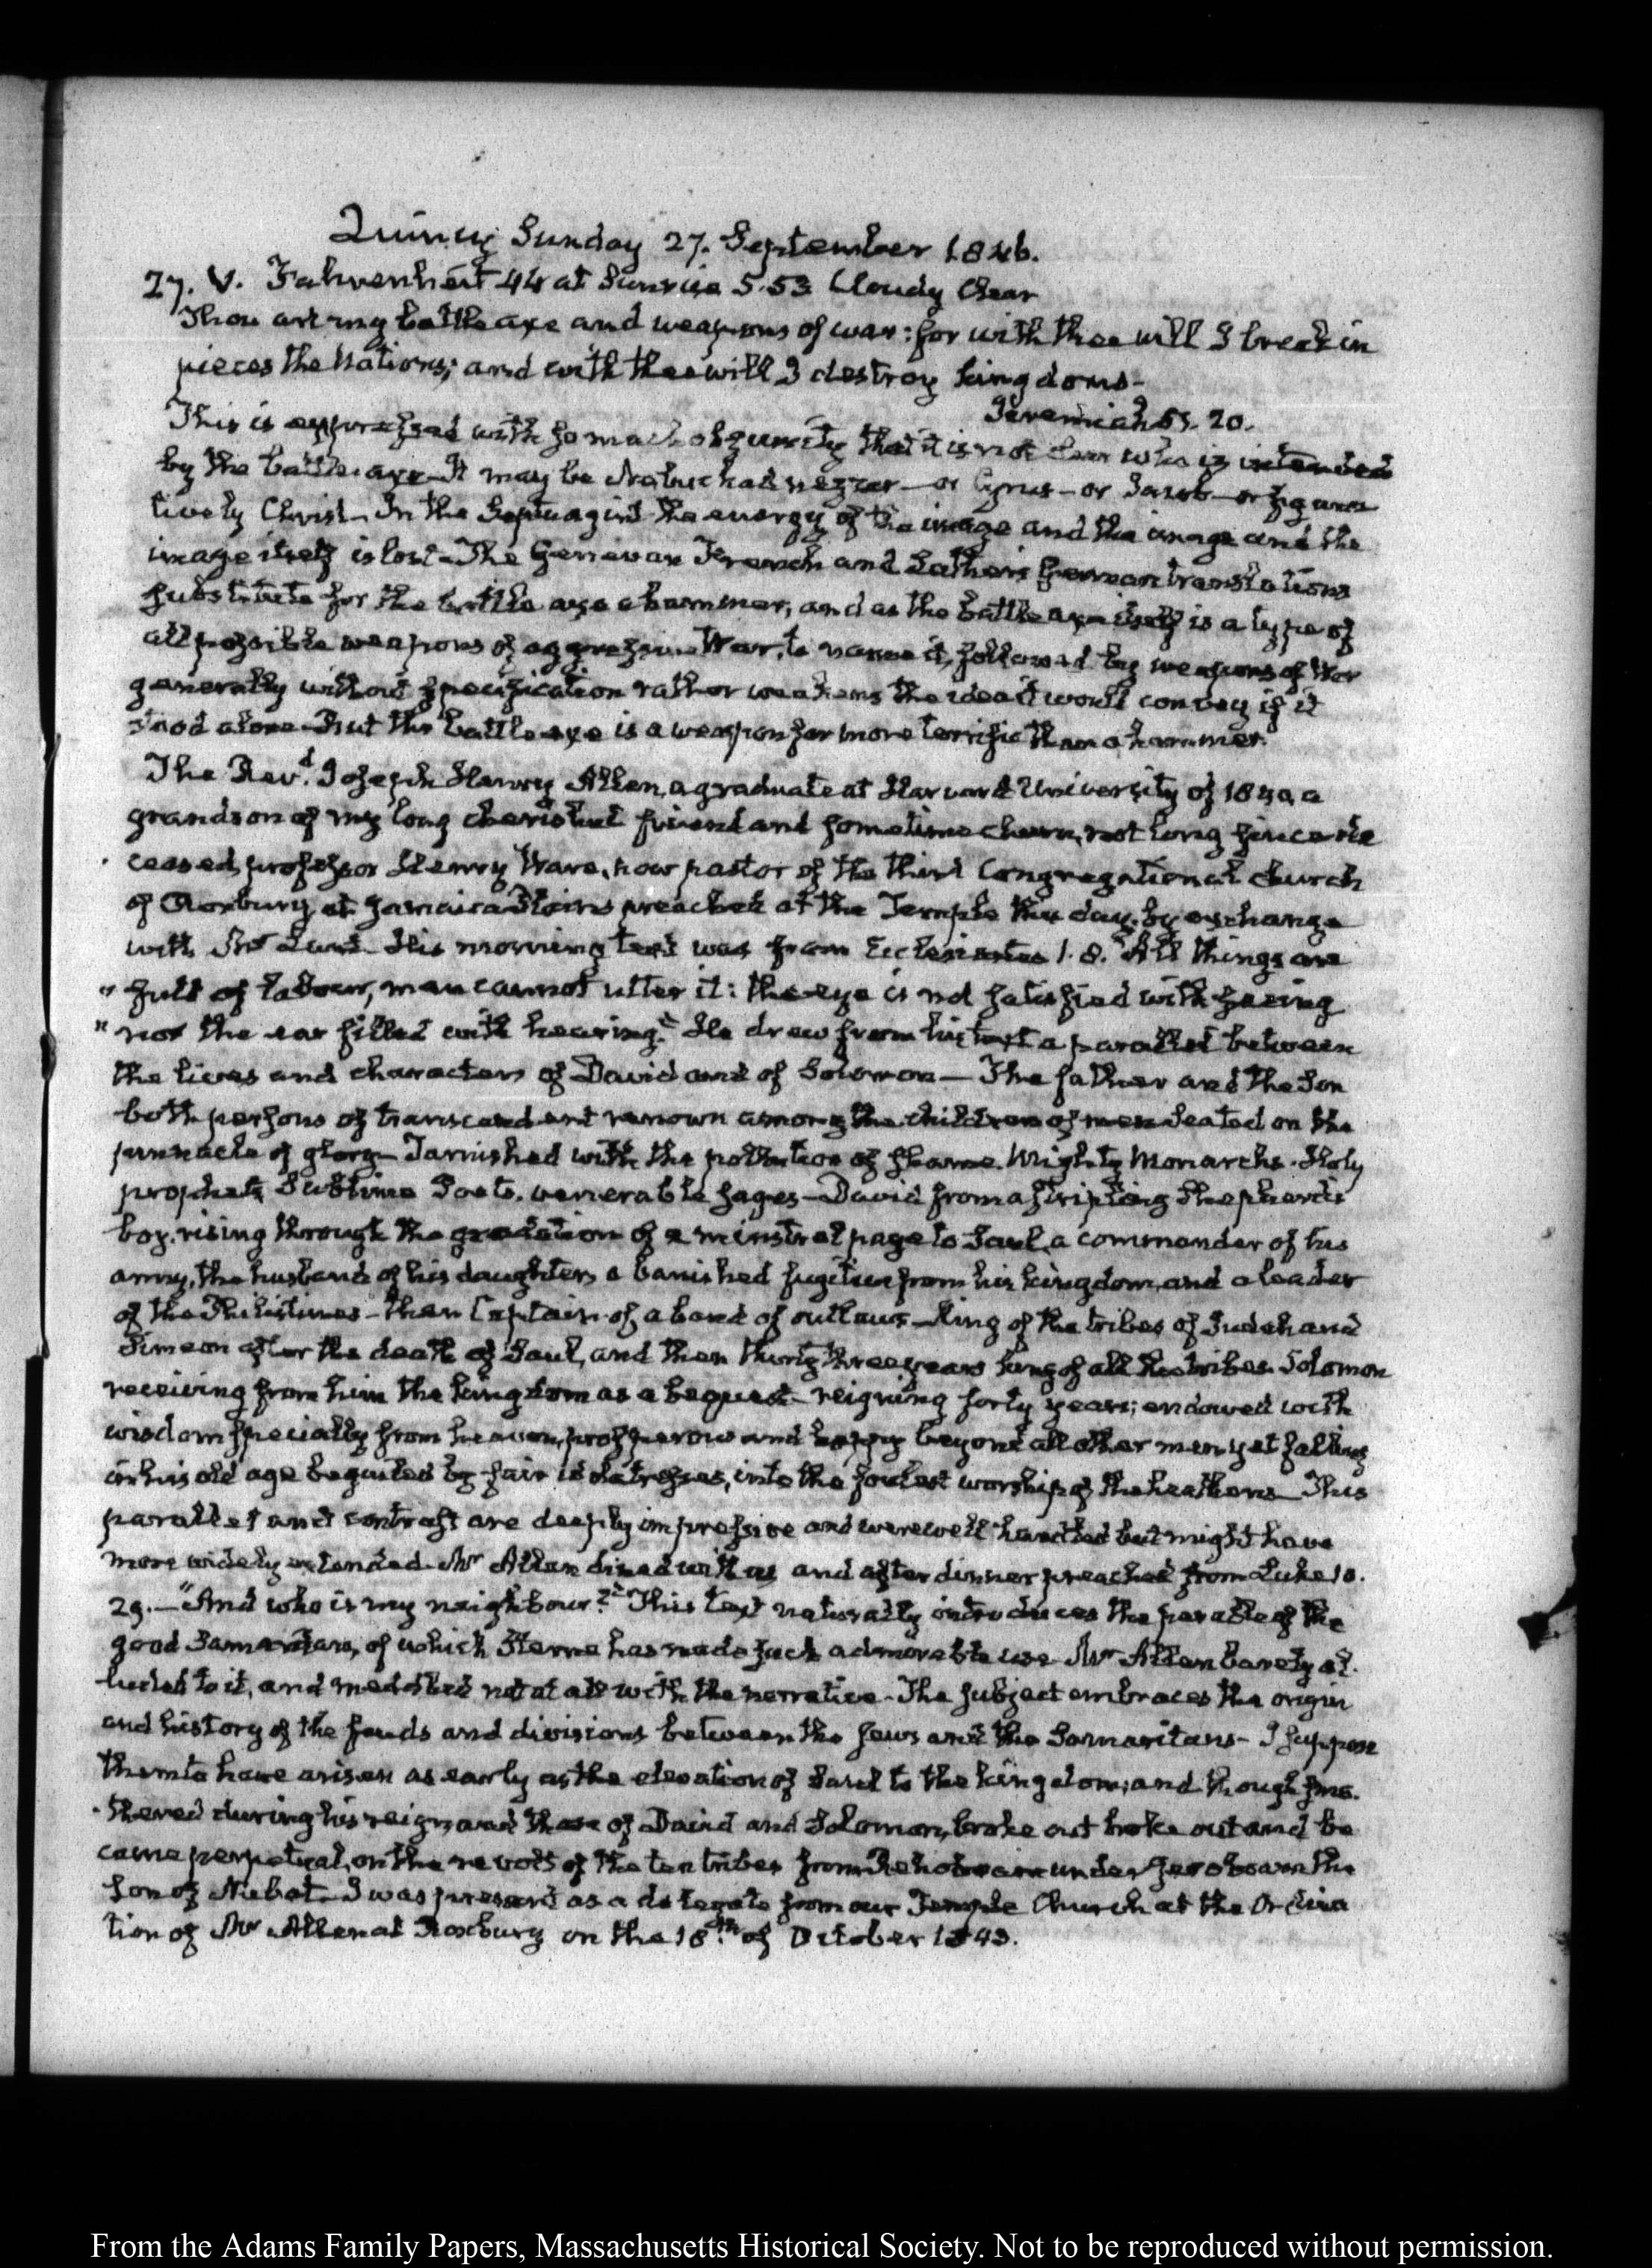 Quincy Sunday 27. September 1846.
27. V. Fahrenheit 44 at Sunrise 5.53 Cloudy Clear
Thou art my battle axe and weapons of war: for with thee will I break in
pieces the Nations; and with thee will I destroy kingdoms—
Jeremiah 51. 20.
This is expressed with so much obscurity that it is not clear who is intended
by the battle axe— It may be Nabuchadnezzar— or Cyrus— or Jacob— or figura
tively Christ— In the Septuagint the energy of the image and the image and the
image itself is lost— The Genevan French and Luthers German translations
substitute for the battle axe a hammer, and as the battle axe itself is a type of
all possible weapons of aggressive War, to name it, followed by weapons of War
generally without specification rather weakens the idea it would convey if it
stood alone— But the battle axe is a weapon far more terrific than a hammer.
The Revd. Joseph Henry Allen, a graduate at Harvard University of 1840, a
grandson of my long cherished friend and sometime chum, not long since de
ceased, professor Henry Ware, now pastor of the third Congregational church
of Roxbury, at Jamaica Plains preached at the Temple this day, by exchange
with Mr Lunt— His morning text was from Ecclesiastes 1. 8. "All things are
" full of labour, man cannot utter it: the eye is not satisfied with seeing
" nor the ear filled with hearing." He drew from his text a parallel between
the lives and characters of David and of Solomon— The father and the Son
both persons of transcendent renown among the children of men seated on the
pinnacle of glory— Tarnished with the pollution of shame. Mighty Monarchs. Holy
prophets Sublime Poets. venerable sages— David from a stripling Shepherd's
boy. rising through the gradation of a minstrel page to Saul, a commander of his
army, the husband of his daughter, a banished fugitive from his kingdom, and a leader
of the Philistines— then Captain of a band of outlaws— King of the tribes of Judah and
Simeon after the death of Saul, and then thirty three years king of all the tribes. Solomon
receiving from him the kingdom as a bequest— reigning forty years; endowed with
wisdom specially from heaven, prosperous and happy beyond all other men yet falling
in his old age beguiled by fair idolatresses, into the foulest worship of the heathens— This
parallel and contrast are deeply impressive and were well handled but might have
more widely extended— Mr Allen dined with us and after dinner preached from Luke 10.
29.— "And who is my neighbour?" This text naturally introduces the parable of the
good Samaritan, of which Sterne has made such admirable use Mr Allen barely al
luded to it, and meddled not at all with the narrative— The subject embraces the origin
and history of the feuds and divisions between the Jews and the Samaritans— I suppose
them to have arisen as early as the elevation of Saul to the kingdom; and though smo
thered during his reign, and those of David and Solomon, broke out broke out and be
came perpetual, on the revolt of the ten tribes from Rehoboam under Jeroboam the
Son of Nebat— I was present as a delegate from our Temple Church at the Ordina
tion of Mr Allen at Roxbury on the 18th. of October 1843.
From the Adams Family Papers, Massachusetts Historical Society. Not to be reproduced without permission.